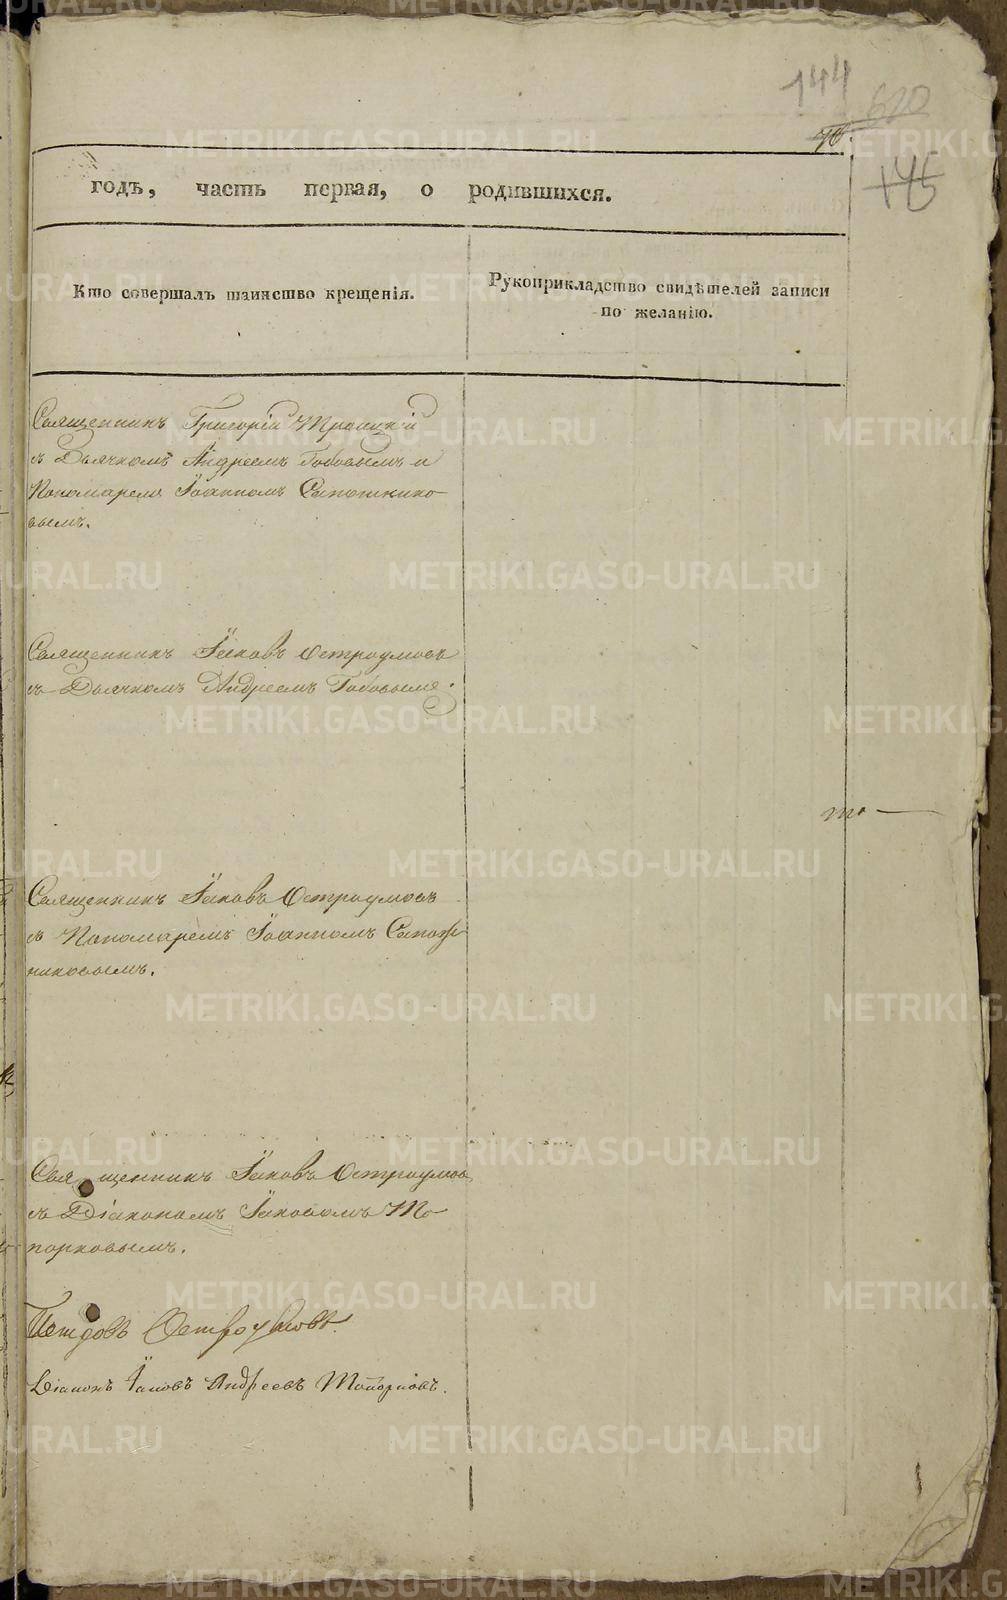 144
620
76.
145
годъ, часть первая, о родившихся.
Кто совершалъ таинство крещенія.
Рукоприкладство свидѣтелей записи
по желанію.
Священникъ Григорій Троицкій
съ Дьячкомъ Андреемъ Гобовымъ и
Пономаремъ Іоанномъ Сапожнико-
вымъ.
Священникъ Іаковъ Остроумовъ
съ Дьячкомъ Андреемъ Гобовымъ.
то
Священникъ Іаковъ Остроумовъ
съ Пономаремъ Іоанномъ Сапож-
никовымъ.
Священникъ Іаковъ Остроумовъ
съ Діакономъ Іаковомъ То-
порковымъ.
Остроумовъ.
Діаконъ Іаковъ Андреевъ Топорковъ.
METRIKI.GASO-URAL.RU